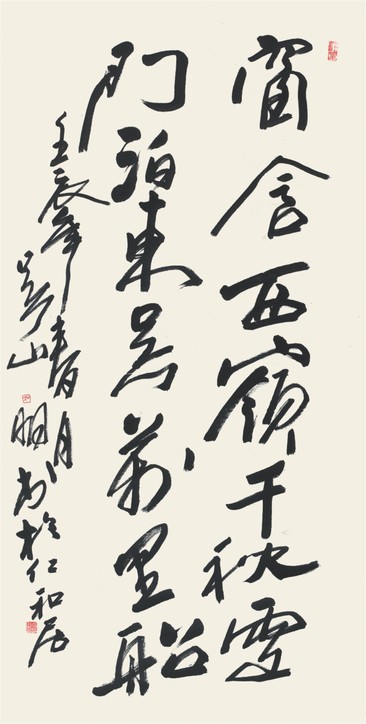 窗含西嶺千秋雪
門泊東吴萬里船
壬辰年月
吴山明书於仁和居